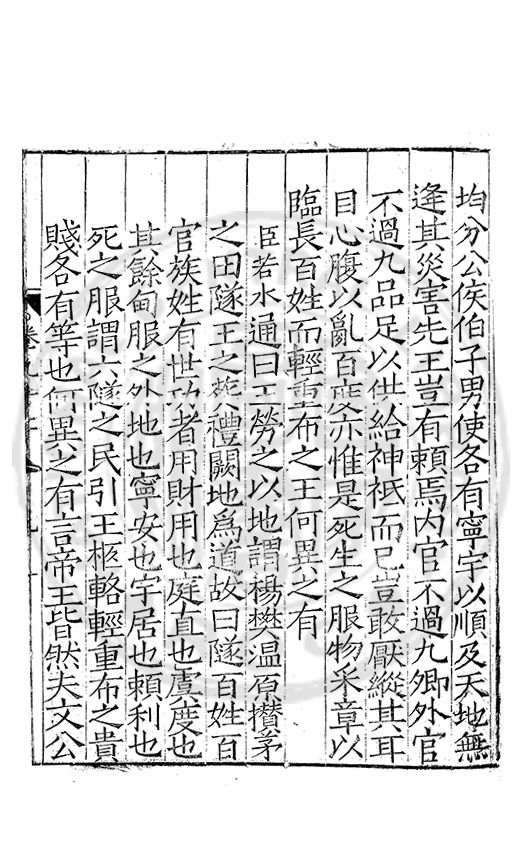 均分公侯伯子男使各有寧宇以順及天地無
逢其災害先王豈有賴焉内官不過九卿外官
不過九品足以供給神祇而已豈敢厭縱其耳
目心腹以亂百度亦惟是死生之服物采章以
臨長百姓而輕重布之王何異之有
臣若水通曰王勞之以地謂楊樊温原攅茅
之田隧王之葬禮闕地爲道故曰隧百姓百
官族姓有世功者用財用也庭直也虞度也
其餘甸服之外地也寧安也宇居也賴利也
死之服謂六隧之民引王柩輅輕重布之貴
賤各有等也何異之有言帝王皆然夫文公